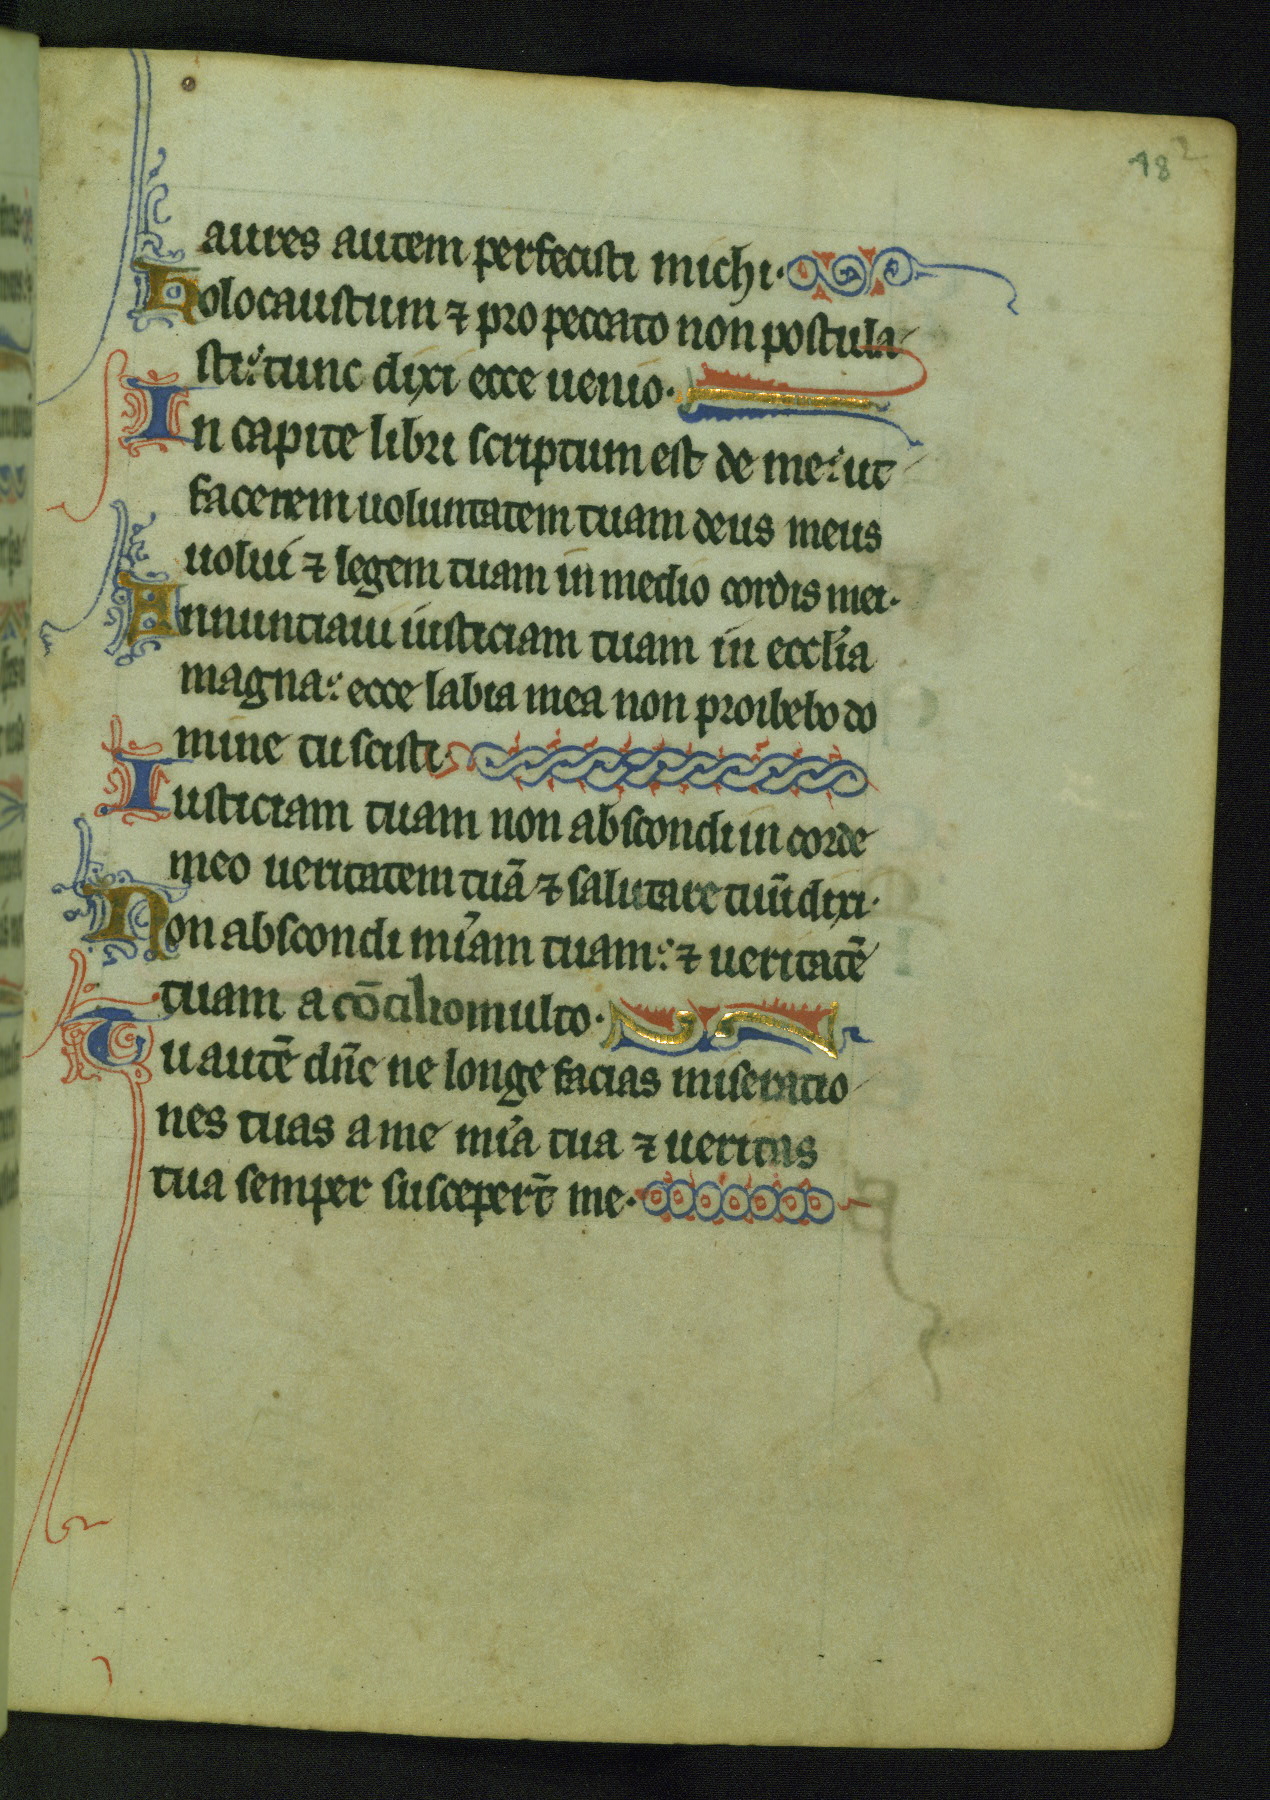 182
aures autem perfecisti michi.
Holocaustum ⁊ pro peccato non postula
sti: tunc dixi ecce uenio.
In capite libri scriptum est de me: ut
facerem uoluntatem tuam deus meus
uolui ⁊ legem tuam in medio cordis mei.
Annunciaui iusticiam tuam in eccl'ia
magna: ecce labia mea non proibebo do
mine tu scisti.
Iusticiam tuam non abscondi in corde
meo ueritatem tuā ⁊ salutare tuū dixi.
Non abscondi mi'am tuam: ⁊ ueritatē
tuam a cōcilio multo.
Tu autē dn̄e ne longe facias miseratio
nes tuas a me mi'a tua ⁊ ueritas
tua semper susceper̄t me.